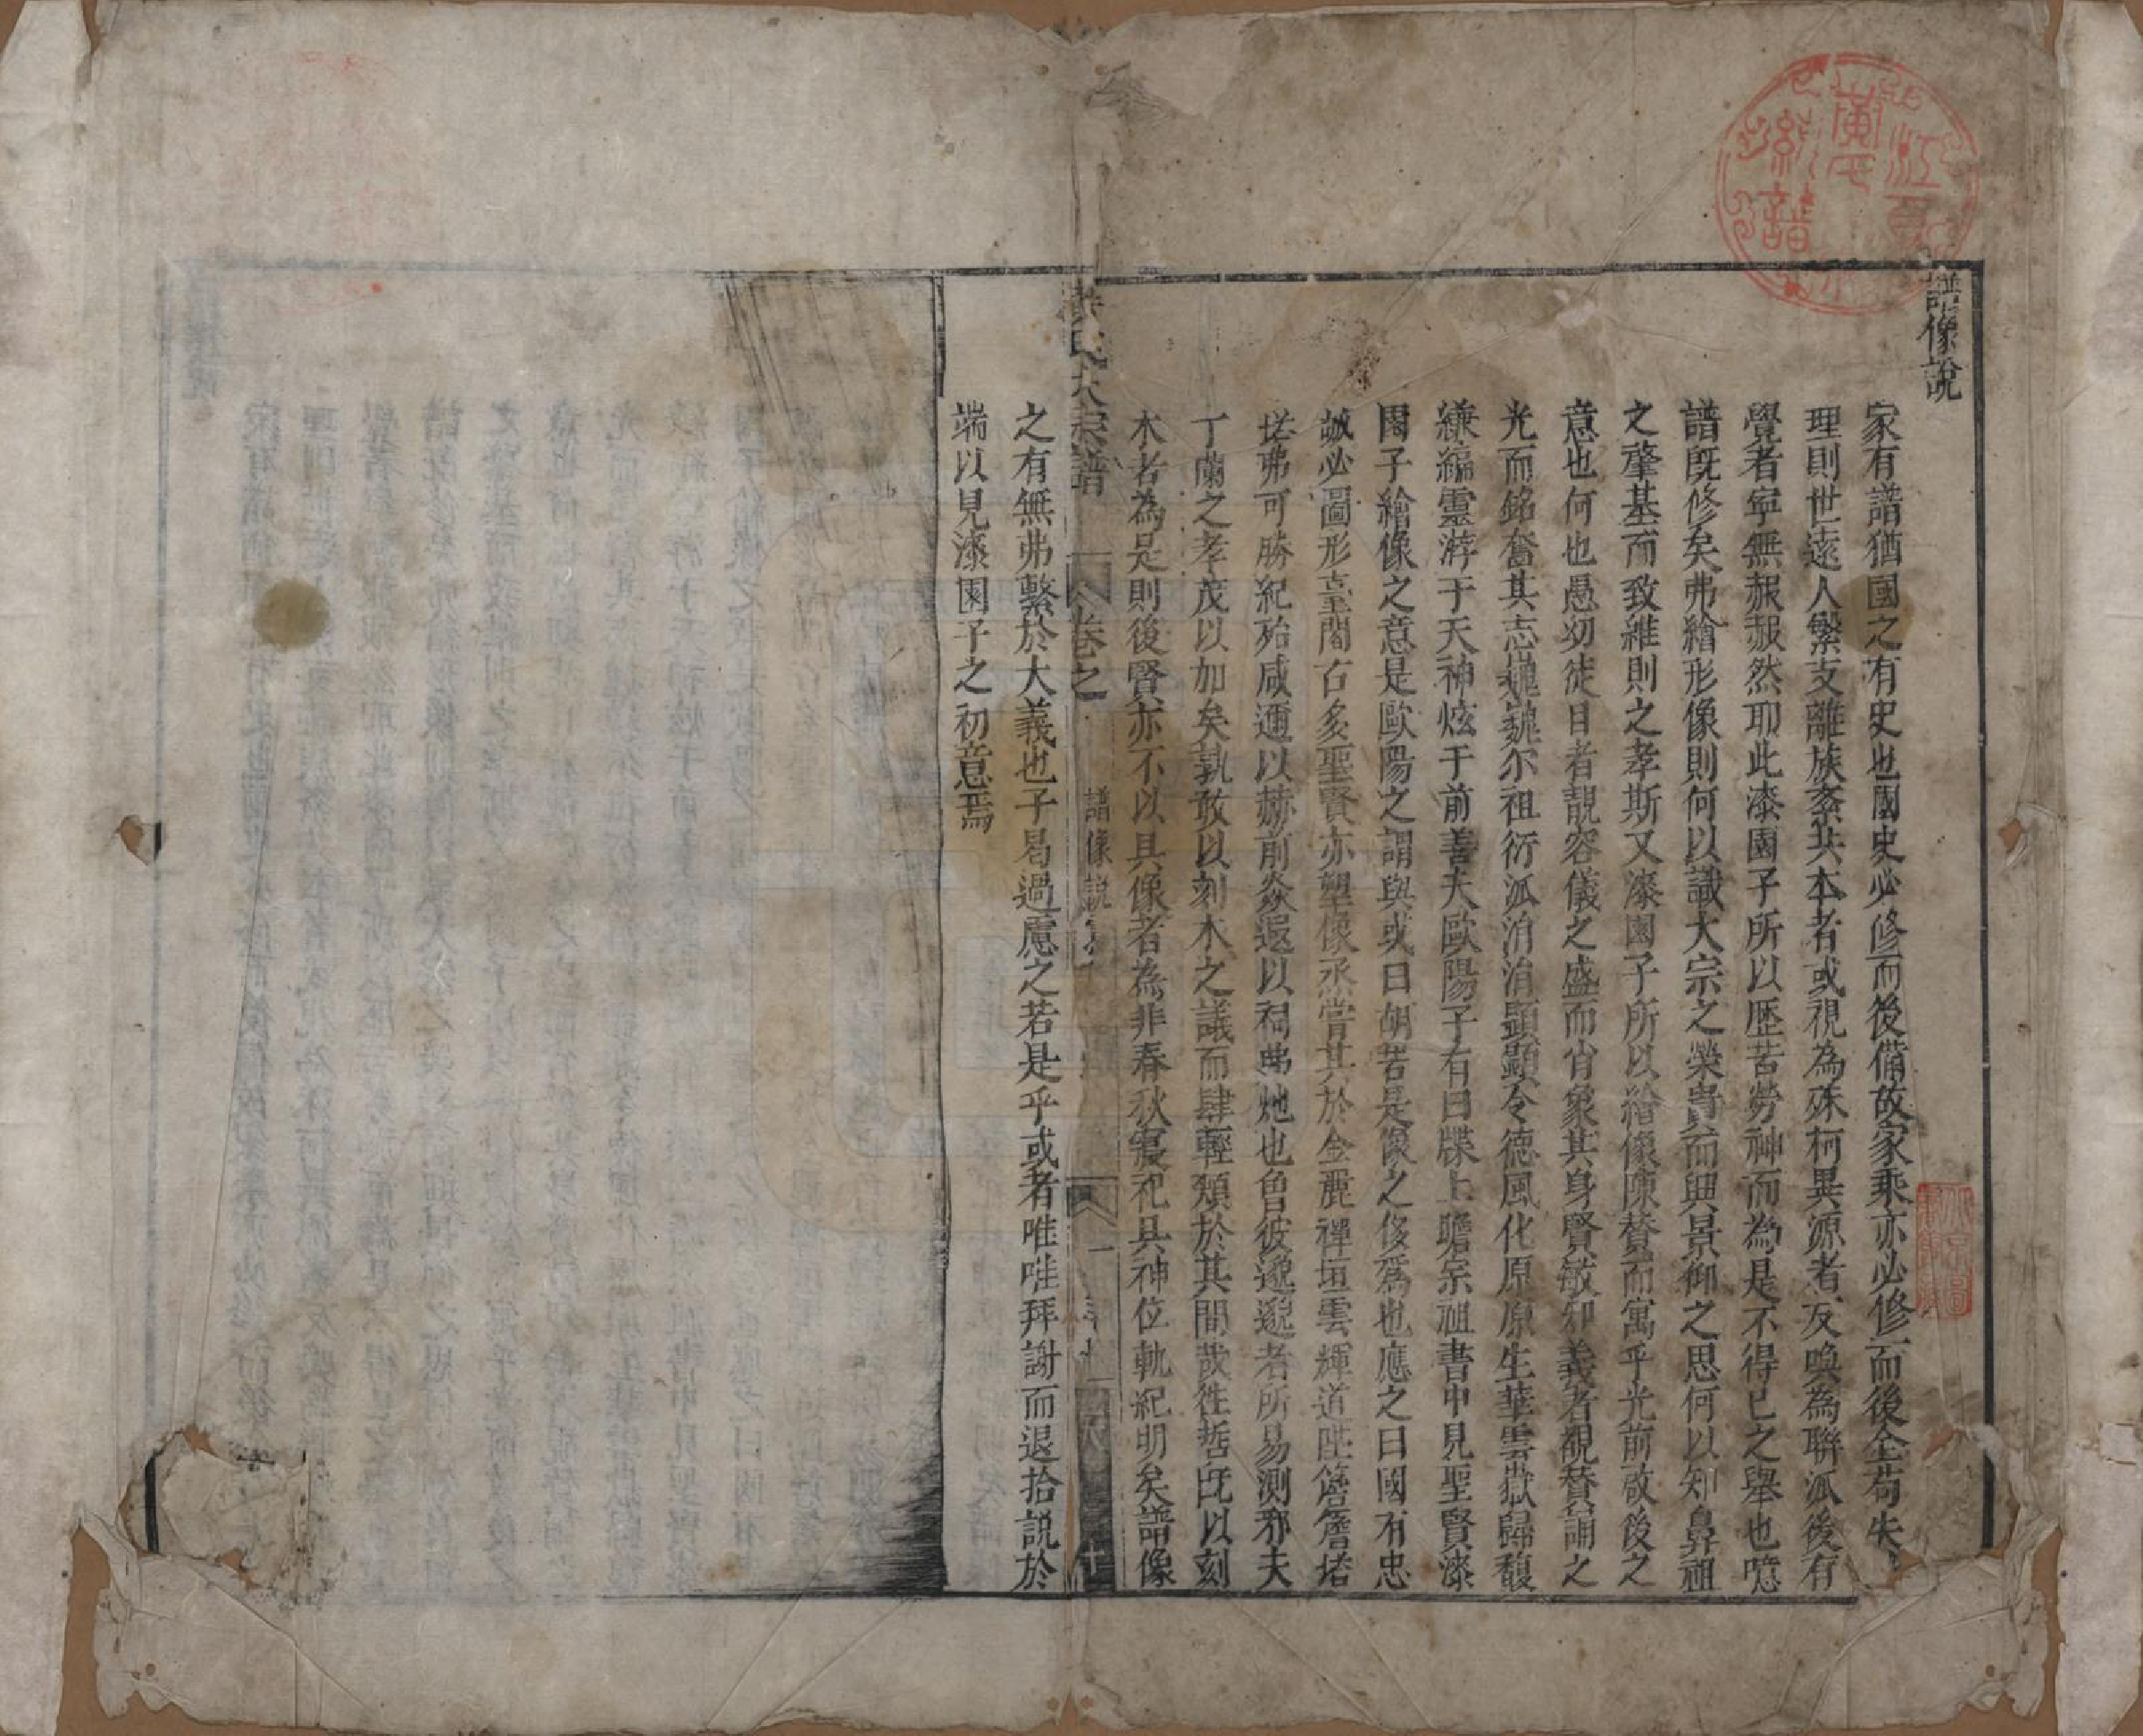 譜像說
家有譜猶國之有史也國史必修而後備故家乘亦必修而後全苟失
理則世遠人繁支離族紊共本者或視為殊柯異源者反喚為聯派後有
覺者寧無赧赧然耶此漆園子所以歷苦勞神而為是不得已之舉也噫
譜既修矣弗繪形像則何以識大宗之榮貴而興景仰之思何以知鼻祖
之肇基而致維則之孝斯又漆園子所以繪像陳贊而寓乎光前啟後之
意也何也愚幼徒目者靚容儀之盛而肯象其身賢敏知義者覩贊誦之
光而銘奮其志巍巍尔祖衍派涓涓顯顯令德風化原原生華雲嶽歸馥
縑編靈游于天神炫于前善夫歐陽子有曰牒上瞻宗祖書中見聖賢漆
園子繪像之意是歐陽之謂與或曰胡苦是像之侈為也應之曰國有忠
誠必圖形臺閣古多聖賢亦塑像烝嘗其於金麗禪垣雲輝道陛簷簷塔
塔弗可勝紀殆咸邇以赫前炎遐以祠弗灺也曾彼邈邈者所易測邪夫
丁蘭之孝茂以加矣孰敢以刻木之議而肆輕頻於其間哉往哲既以刻
木者為是則後賢亦不以具像者為非春秋寢祀具神位軌紀明矣譜像
之有無弗繫於大義也子曷過慮之若是乎或者唯唯拜謝而退拾説於
端以見漆園子之初意焉
氏大宗譜
卷之
譜像説